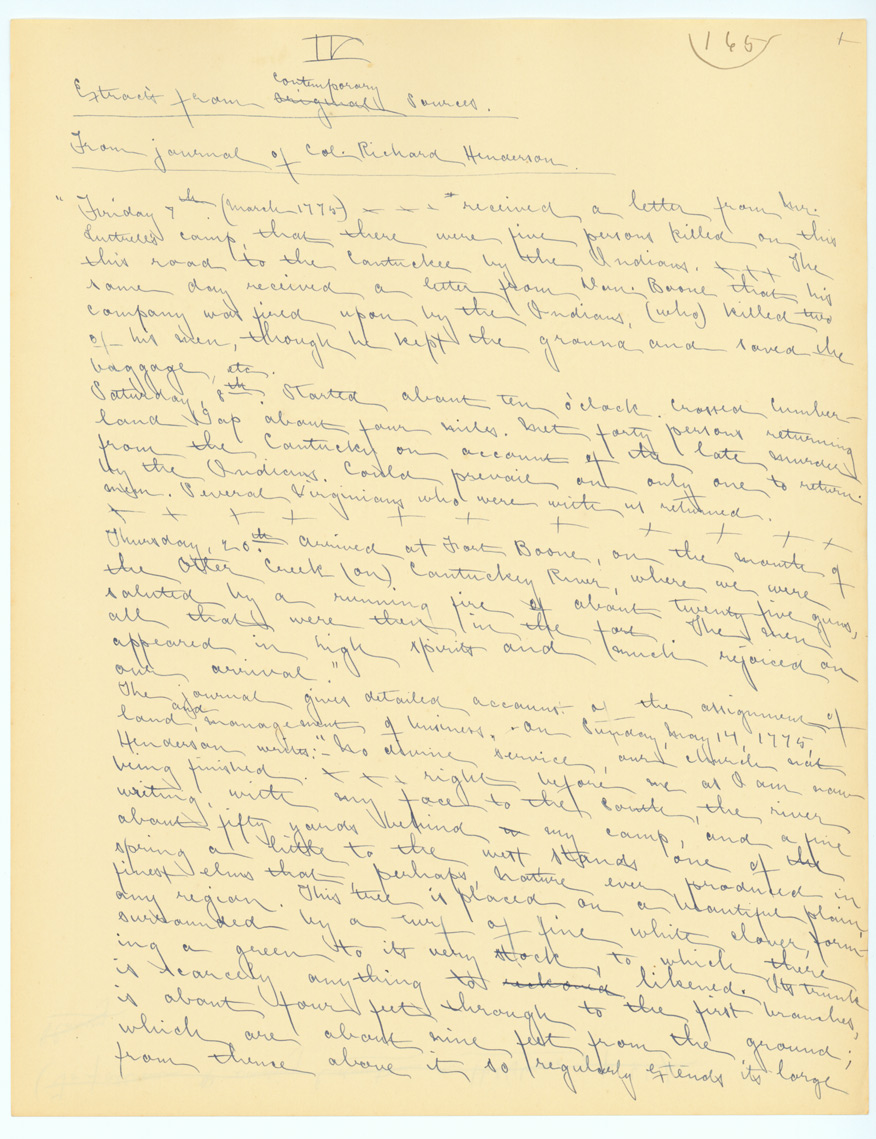 IV
165
+
Extracts from contemporary original sources.
From journal of Col. Richard Henderson.
"Friday 7th. (March 1775) x x x "received a letter from Mr.
Luttrels camp, that there were five persons killed on this
this road to the Cantuckee by the Indians. x x x The
same day received a letter from Dan. Boone that his
company was fired upon by the Indians, (who) killed two
of his men, though he kept the ground and saved the
baggage, etc.
Saturday, 8th. Started about ten o'clock. Crossed Cumber-
land Gap about four miles. Met forty persons returning
from the Cantucky on account of the late murders
by the Indians. Could prevail on only one to return.
mem. Several Virginians who were with us returned.
x x x x x x x x x x x
Thursday, 20th. arrived at Fort Boone, on the mouth of
the Otter Creek (on) Cantuckey River, where we were
saluted by a running fire of about twenty five guns,
all that were then in the fort. The men
appeared in high spirits and much rejoiced on
our arrival."
The journal gives detailed account of the assignment of
land, and management of business. On Sunday, May 14, 1775,
Henderson writes:-"No divine service, our church not
being finished. x x x right before me as I am now
writing, with my face to the south, the river
about fifty yards behind my camp, and a fine
spring a little to the west stands one of the
finest elms that perhaps nature ever produced in
any region. This tree is placed on a beautiful plain,
surrounded by a turf of fine white clover, form-
ing a green to its very stock, to which there
is scarcely anything to likened. Its trunk
is about four feet through to the first branches,
which are about nine feet from the ground;
from thence above it so regularly extends its large